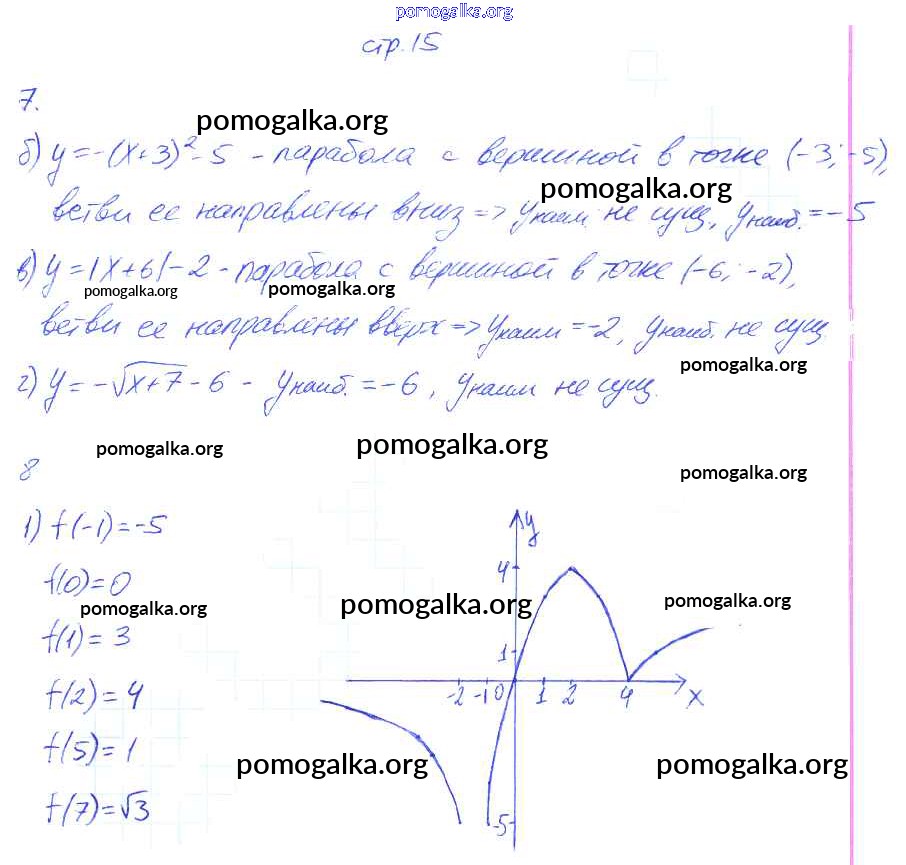 pomogalka.org
стр. 15
7.
pomogalka.org
б) y = -(x+3)² - 5 - парабола с вершиной в точке (-3; -5),
pomogalka.org
ветви ее направлены вниз => yнаим. не сущ, yнаиб. = -5
в) y = |x+6| - 2 - парабола с вершиной в точке (-6; -2),
pomogalka.org pomogalka.org
ветви ее направлены вверх => yнаим = -2, yнаиб. не сущ.
pomogalka.org
г) y = -√x+7 - 6 - yнаиб. = -6, yнаим не сущ.
pomogalka.org pomogalka.org
pomogalka.org
8
1) f(-1) = -5
y
4
f(0) = 0
pomogalka.org pomogalka.org pomogalka.org
f(1) = 3
1
f(2) = 4
-2 -1 0 1 2 4 x
f(5) = 1
pomogalka.org pomogalka.org
f(7) = √3
-5